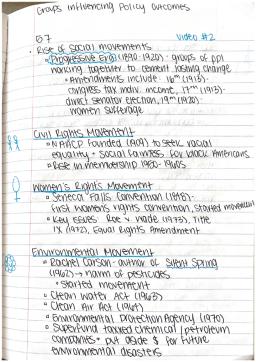 Groups influencing Policy Outcomes
5.7 Video #2
• Rise of social movements
• Progressive Era (1890-1920) - groups of ppl
working together to cement lasting change
• Amendments include: 16th (1913)-
congress tax indiv. income, 17th (1913)-
direct senator election, 19th (1920)-
women suffrage
Civil Rights Movement
• NAACP founded (1909) to seek racial
equality + social fairness for black Americans
• Rise in membership 1930-1960s
Women's Rights Movement
• Seneca Falls Convention (1848)-
first women's rights convention, started movement
• Key issues: Roe v. Wade (1973), Title
IX (1972), Equal Rights Amendment
Environmental Movement
• Rachel Carson - author of Silent Spring
(1962) → harm of pesticides
• started movement
• Clean Water Act (1963)
• Clean Air Act (1964)
• Environmental Protection Agency (1970)
• Superfund taxed chemical/petroleum
companies + put aside $ for future
environmental disasters